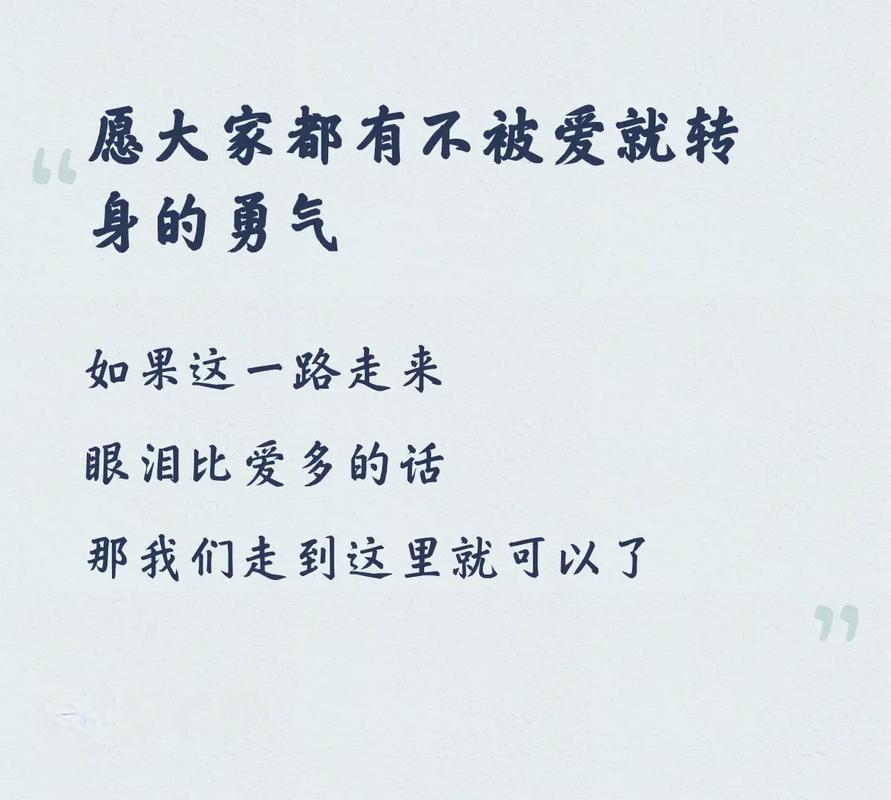 愿大家都有不被爱就转
身的勇气
如果这一路走来
眼泪比爱多的话
那我们走到这里就可以了